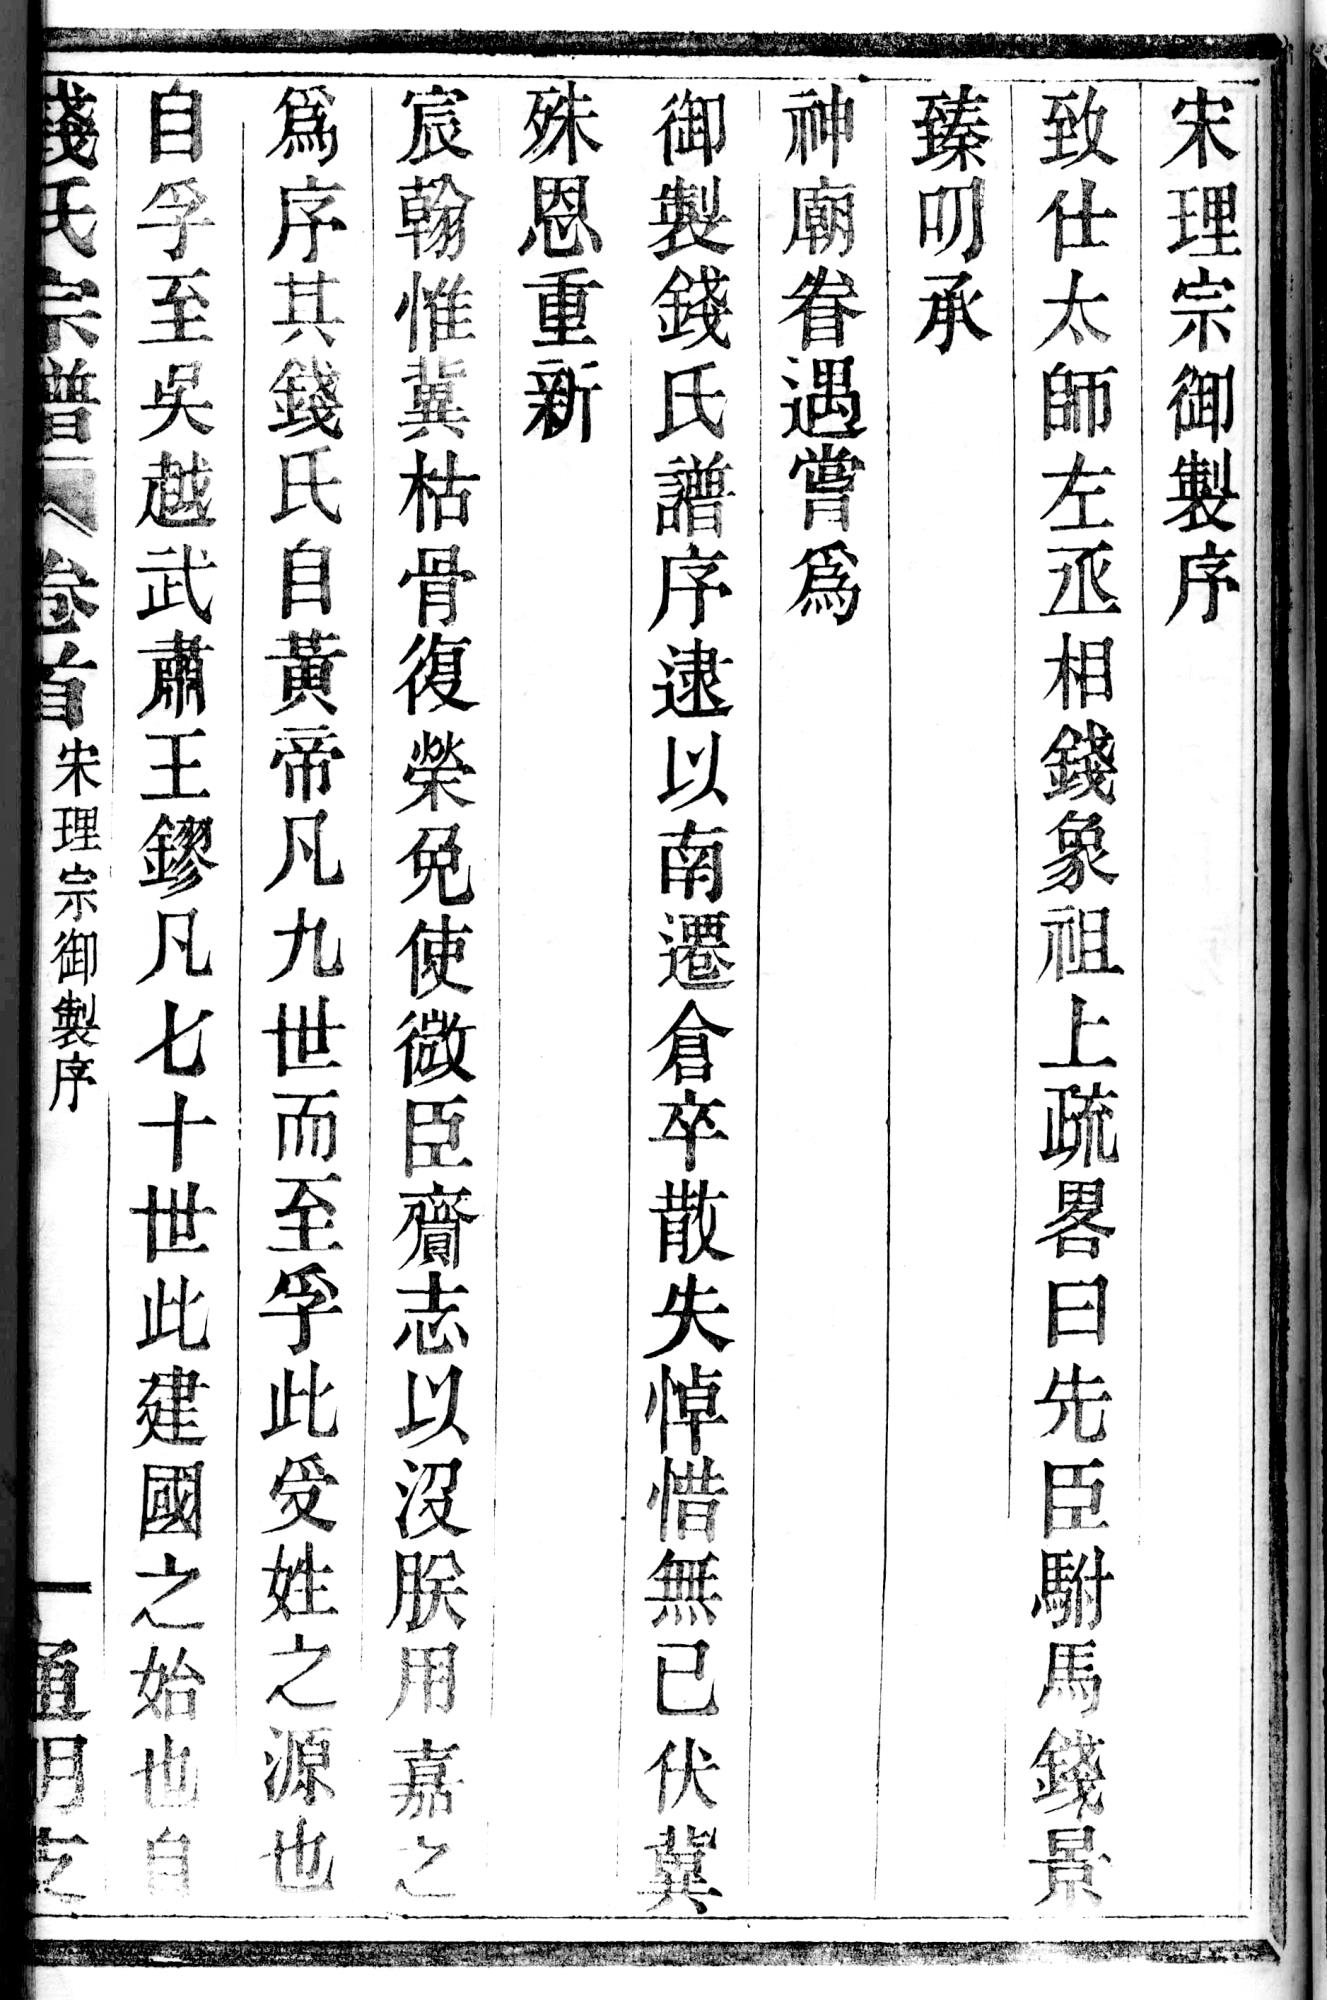 宋理宗御製序
致仕太師左丞相錢象祖上疏畧曰先臣駙馬錢景
臻叨承
神廟眷遇嘗爲
御製錢氏譜序逮以南遷倉卒散失悼惜無已伏冀
殊恩重新
宸翰惟冀枯骨復榮免使微臣齎志以沒朕用嘉之
爲序其錢氏自黃帝凡九世而至孚此受姓之源也
自孚至吳越武肅王鏐凡七十世此建國之始也自
錢氏宗譜 卷首 宋理宗御製序 一 通明支